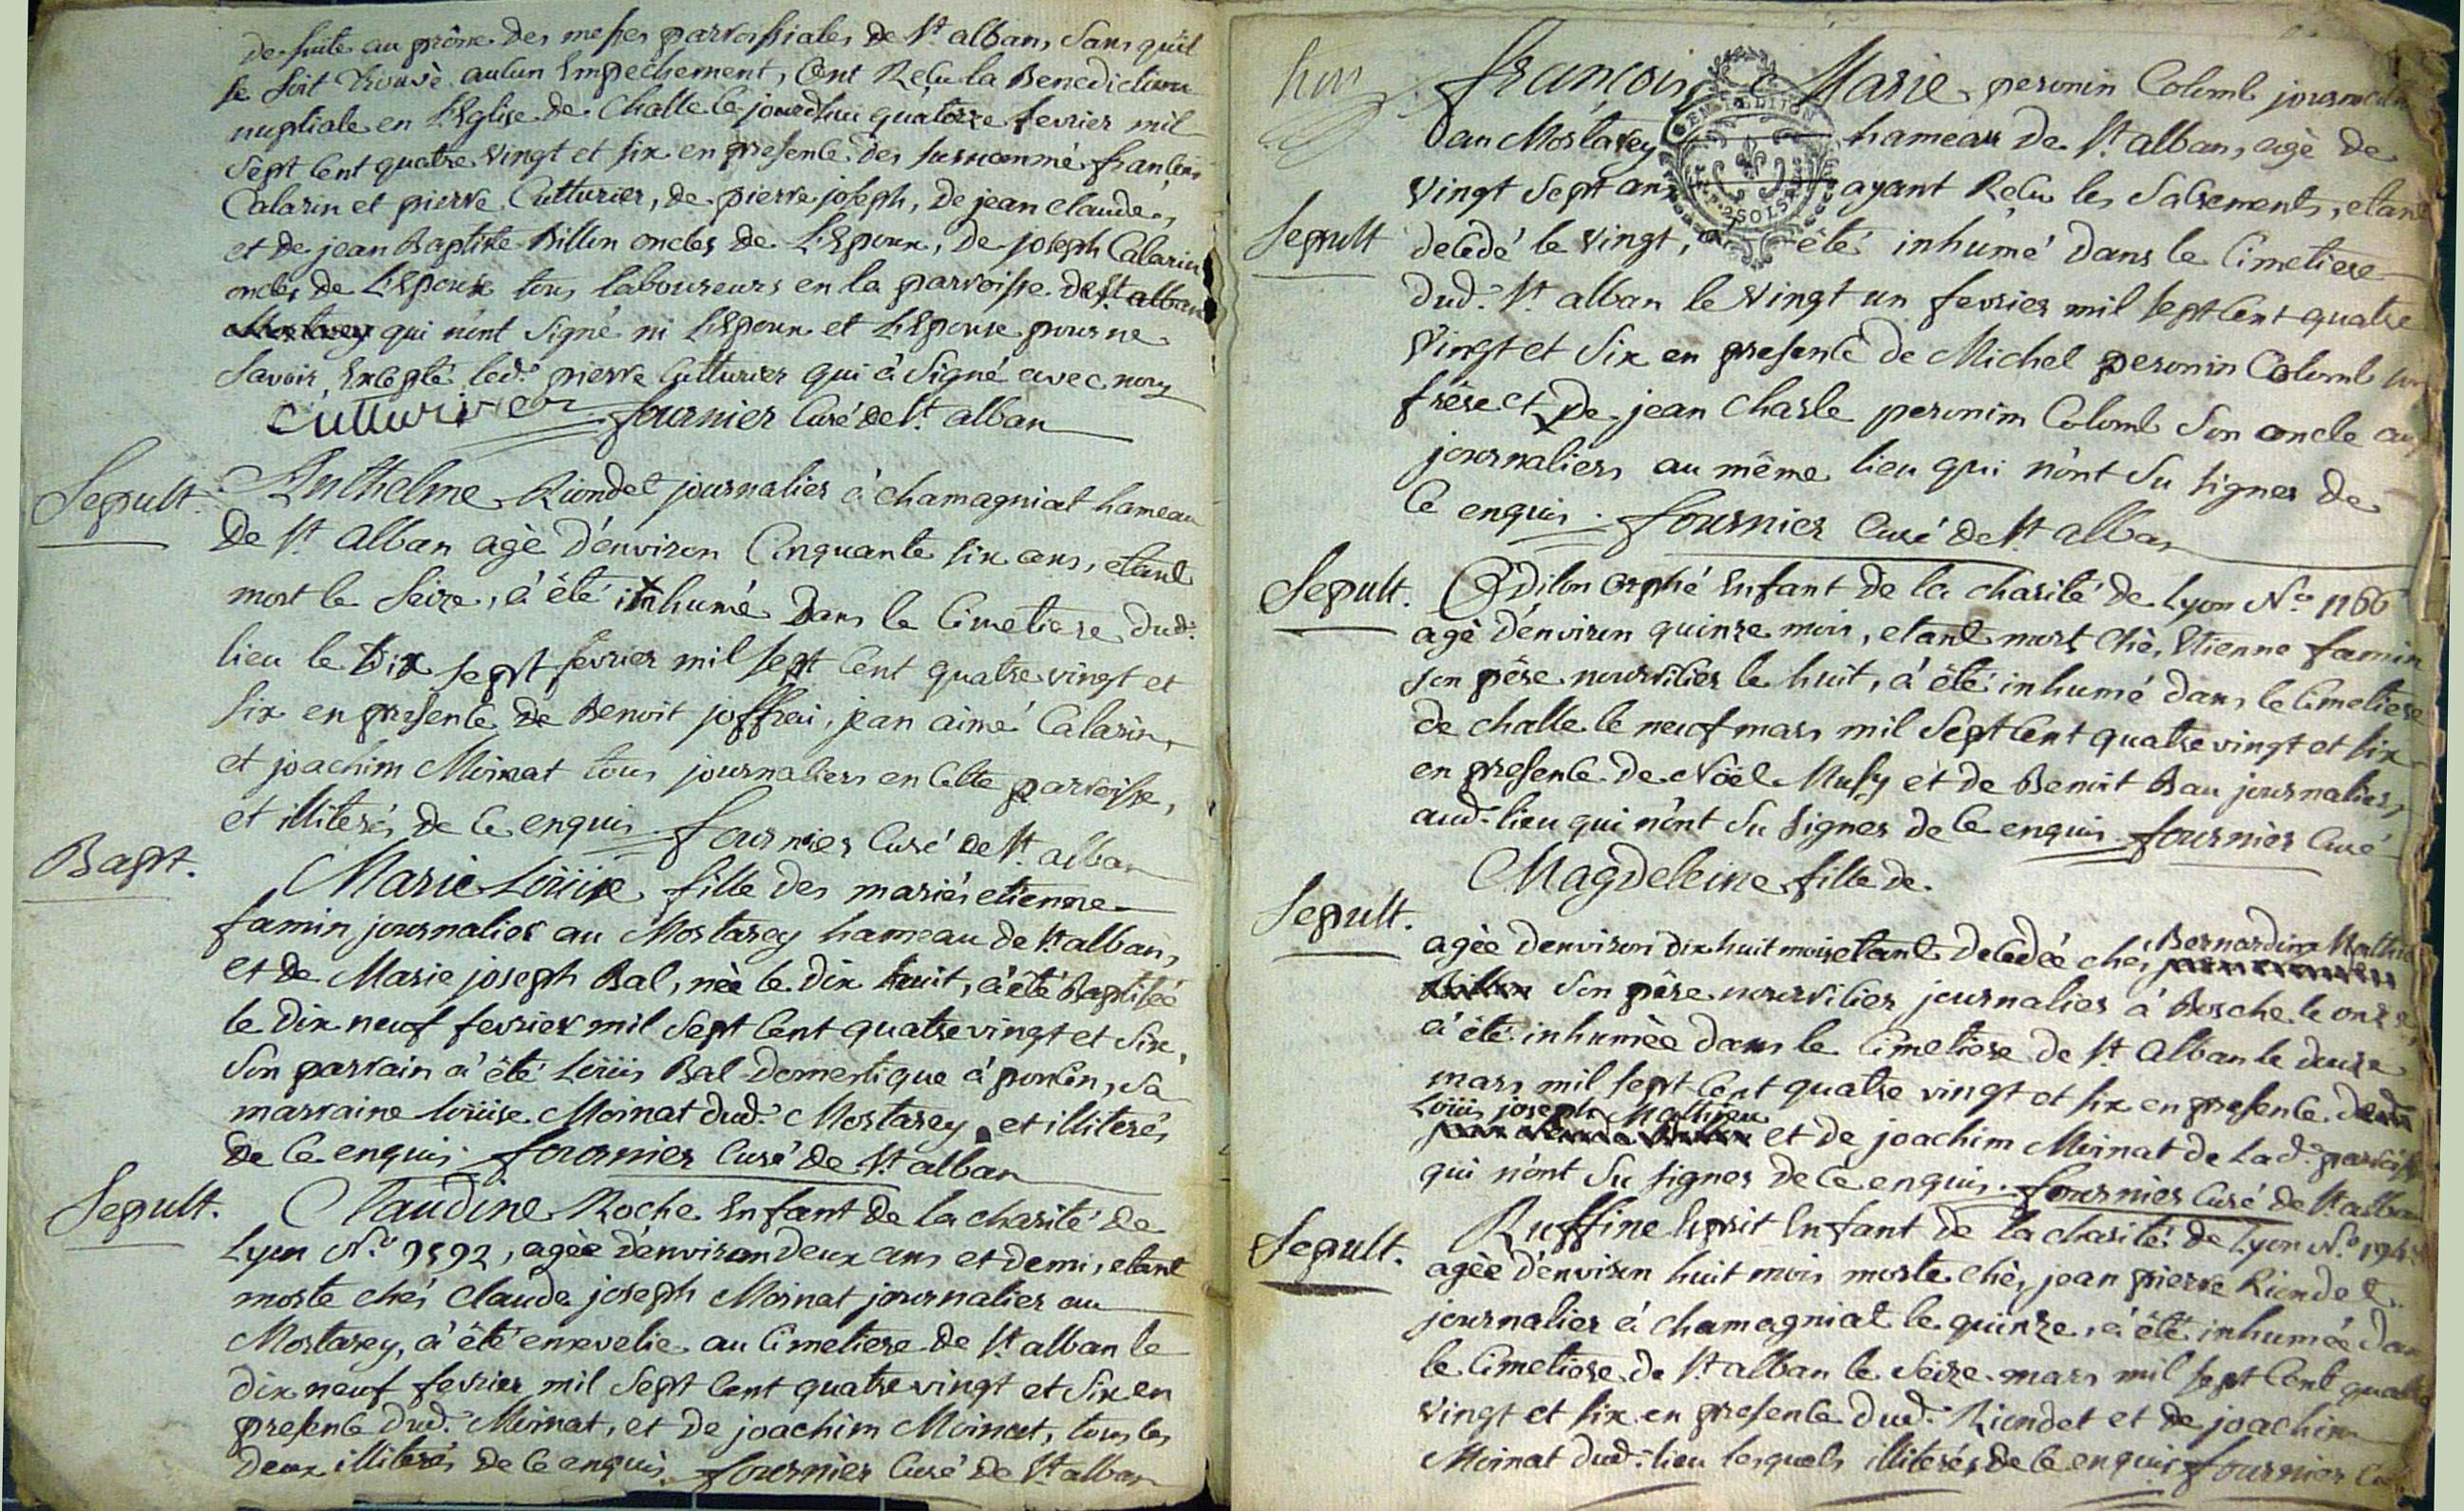 de suite au prône des messes parroissiales de St alban, sans qu'il
se soit trouvè aucun Empêchement, Ont Reçu la Benediction
nuptiale en L'Eglise de Challe le jourdhui quatorze fevrier mil
sept cent quatre vingt et six en presence des susnommé françois
Calarin et pierre Cutturier, de pierre joseph, de jean claude,
et de jean Baptiste Billon oncles de L'Epoux, de joseph Calarin
oncle de L'Epouse tous laboureurs en la parroisse de St alban
qui n'ont signé ni L'Epoux et L'Epouse pour ne
savoir, Excepté led. pierre Cutturier qui à signé avec nous
Cutturier fournier Curé de St alban
Sepult.
Anthelme Riondet journalier à chamagniat hameau
de St alban agè d'environ Cinquante six ans, etant
mort le seize, à été inhumé dans le Cimetiere dud.
lieu le dix sept fevrier mil sept cent quatre vingt et
six en presence de Benoit joffrai, jean aimé Calarin,
et joachim Moinat tous journaliers en cette parroisse,
et illiterés de ce enquis. fournier Curé de St alban
Bapt.
Marie Loüise fille des mariés etienne
famin journalier au Mortarey hameau de St alban,
et de Marie joseph Bal, née le dix huit, à été Baptisée
le dix neuf fevrier mil sept cent quatre vingt et six,
son parrain à été Loüis Bal domestique à poncin, sa
marraine loüise Moinat dud. Mortarey et illiterés
de ce enquis. fournier Curé de St alban
Sepult.
Claudine Roche Enfant de la charité de
Lyon N.o 9592, agée d'environ deux ans et demi, etant
morte chés Claude joseph Moinat journalier au
Mortarey, à été ensevelie au Cimetiere de St alban le
dix neuf fevrier mil sept cent quatre vingt et six en
presence dud. Moinat, et de joachim Moinat, tous les
deux illiterés de ce enquis. fournier Curé de St alban
françois Marie peronin Colomb journalier
au Mortarey hameau de St alban, agè de
vingt sept ans ayant Reçu les Sacrements, etant
Sepult
decedé le vingt, à été inhumé dans le Cimetiere
dud. St alban le vingt un fevrier mil sept cent quatre
vingt et six en presence de Michel peronin Colomb son
frère et de jean charle peronim Colomb son oncle
journaliers au même lieu qui n'ont su signer de
ce enquis. fournier Curé de St alban
Sepult.
Odilon orphé Enfant de la charité de Lyon N.o 1166
agè d'environ quinze mois, etant mort chès Etienne famin
son père nourricier le huit, à été inhumé dans le Cimetiere
de challe le neuf mars mil sept cent quatre vingt et six
en presence de Noël Musy et de Benoit Bau journaliers
aud. lieu qui n'ont su signer de ce enquis. fournier Curé
Magdeleine fille de
Sepult.
agée d'environ dix huit mois etant decedée ches Bernardin Mathieu
son père nourricier journalier à Bosche le onze,
à été inhumée dans le Cimetiere de St Alban le douze
mars mil sept cent quatre vingt et six en presence de
Loüis joseph Mathieu
et de joachim Moinat de lad. parroisse
qui n'ont su signer de ce enquis. fournier Curé de St alban
Sepult.
Ruffine Esprit Enfant de la charité de Lyon N.o
agée d'environ huit mois morte chès jean pierre Riondet
journalier à chamagniat le quinze, à été inhumée dans
le Cimetiere de St alban le seize mars mil sept cent quatre
vingt et six en presence dud. Riondet et de joachim
Moinat dud. lieu lesquels illiterés de ce enquis fournier Curé